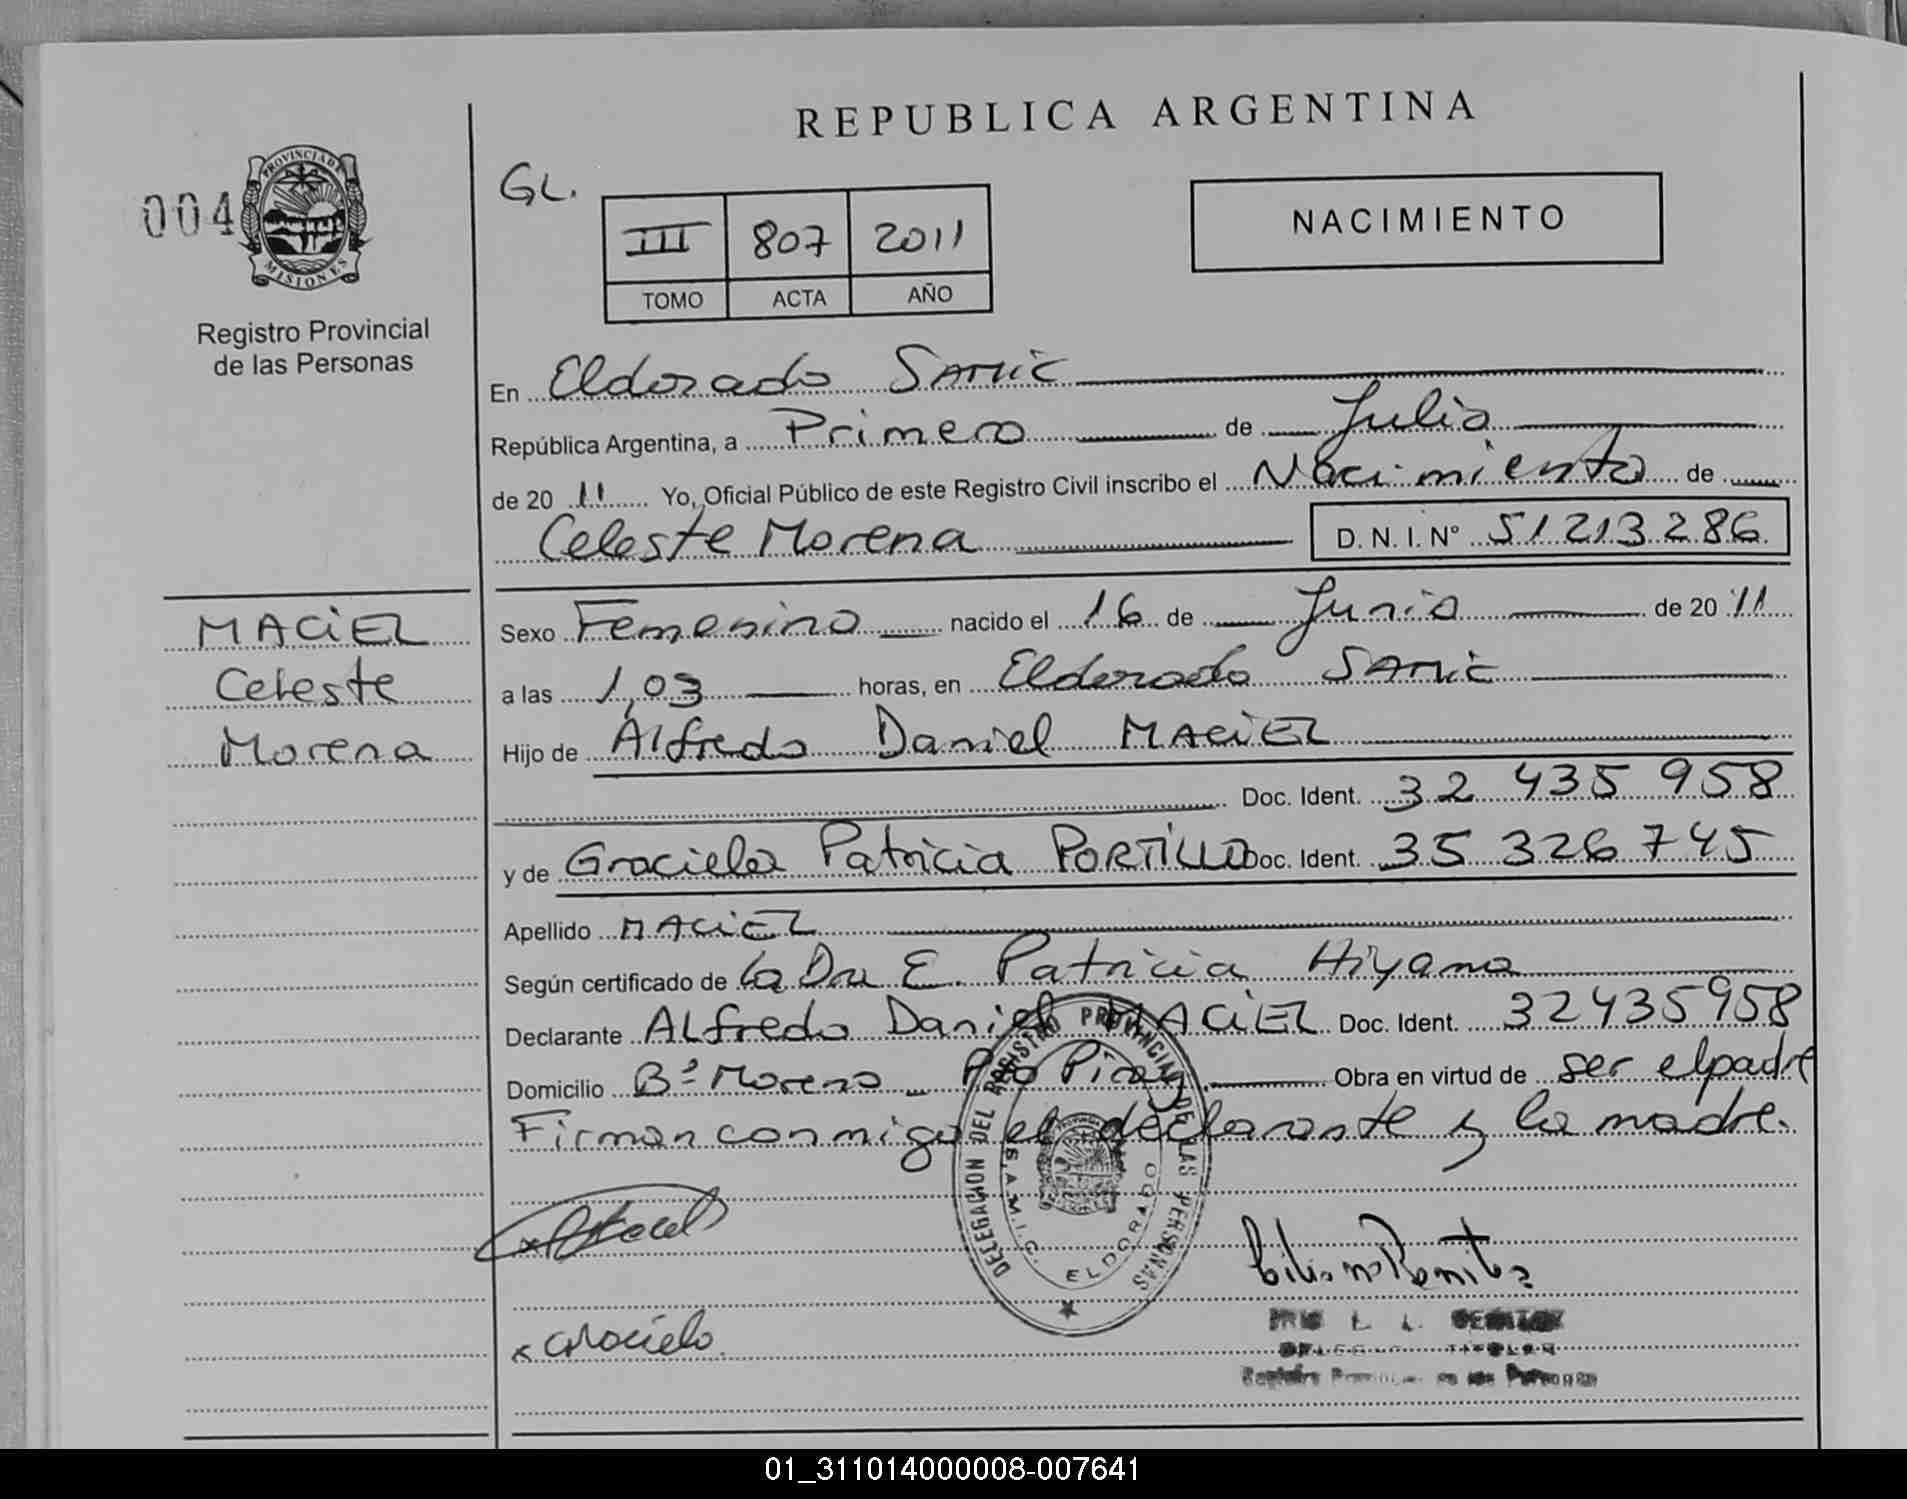 REPUBLICA ARGENTINA
004
PROVINCIA DE
MISIONES
Registro Provincial
de las Personas
GL.
III 807 2011
TOMO ACTA AÑO
NACIMIENTO
En Eldorado SAMIC
República Argentina, a Primero de Julio
de 20 11 Yo, Oficial Público de este Registro Civil inscribo el Nacimiento de
Celeste Morena D. N. I. N° 51213286
MACIEL
Celeste
Morena
Sexo Femenino nacido el 16 de Junio de 20 11
a las 1,03 horas, en Eldorado SAMIC
Hijo de Alfredo Daniel MACIEL
Doc. Ident. 32 435 958
y de Graciela Patricia PORTILLO Doc. Ident. 35 326 745
Apellido MACIEL
Según certificado de la Dra E. Patricia Hiyama
Declarante Alfredo Daniel MACIEL Doc. Ident. 32435958
Domicilio Bº Moreno Pto Piray Obra en virtud de ser el padre
Firman conmigo el declarante y la madre.
DELEGACION DEL REGISTRO PROVINCIAL DE LAS PERSONAS
S.A.M.I.C. ELDORADO
x Graciela
Registro Provincial de las Personas
01_311014000008-007641